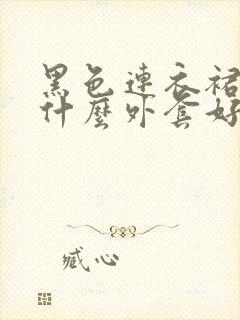 黑色連衣裙
什麼外套好
臧心